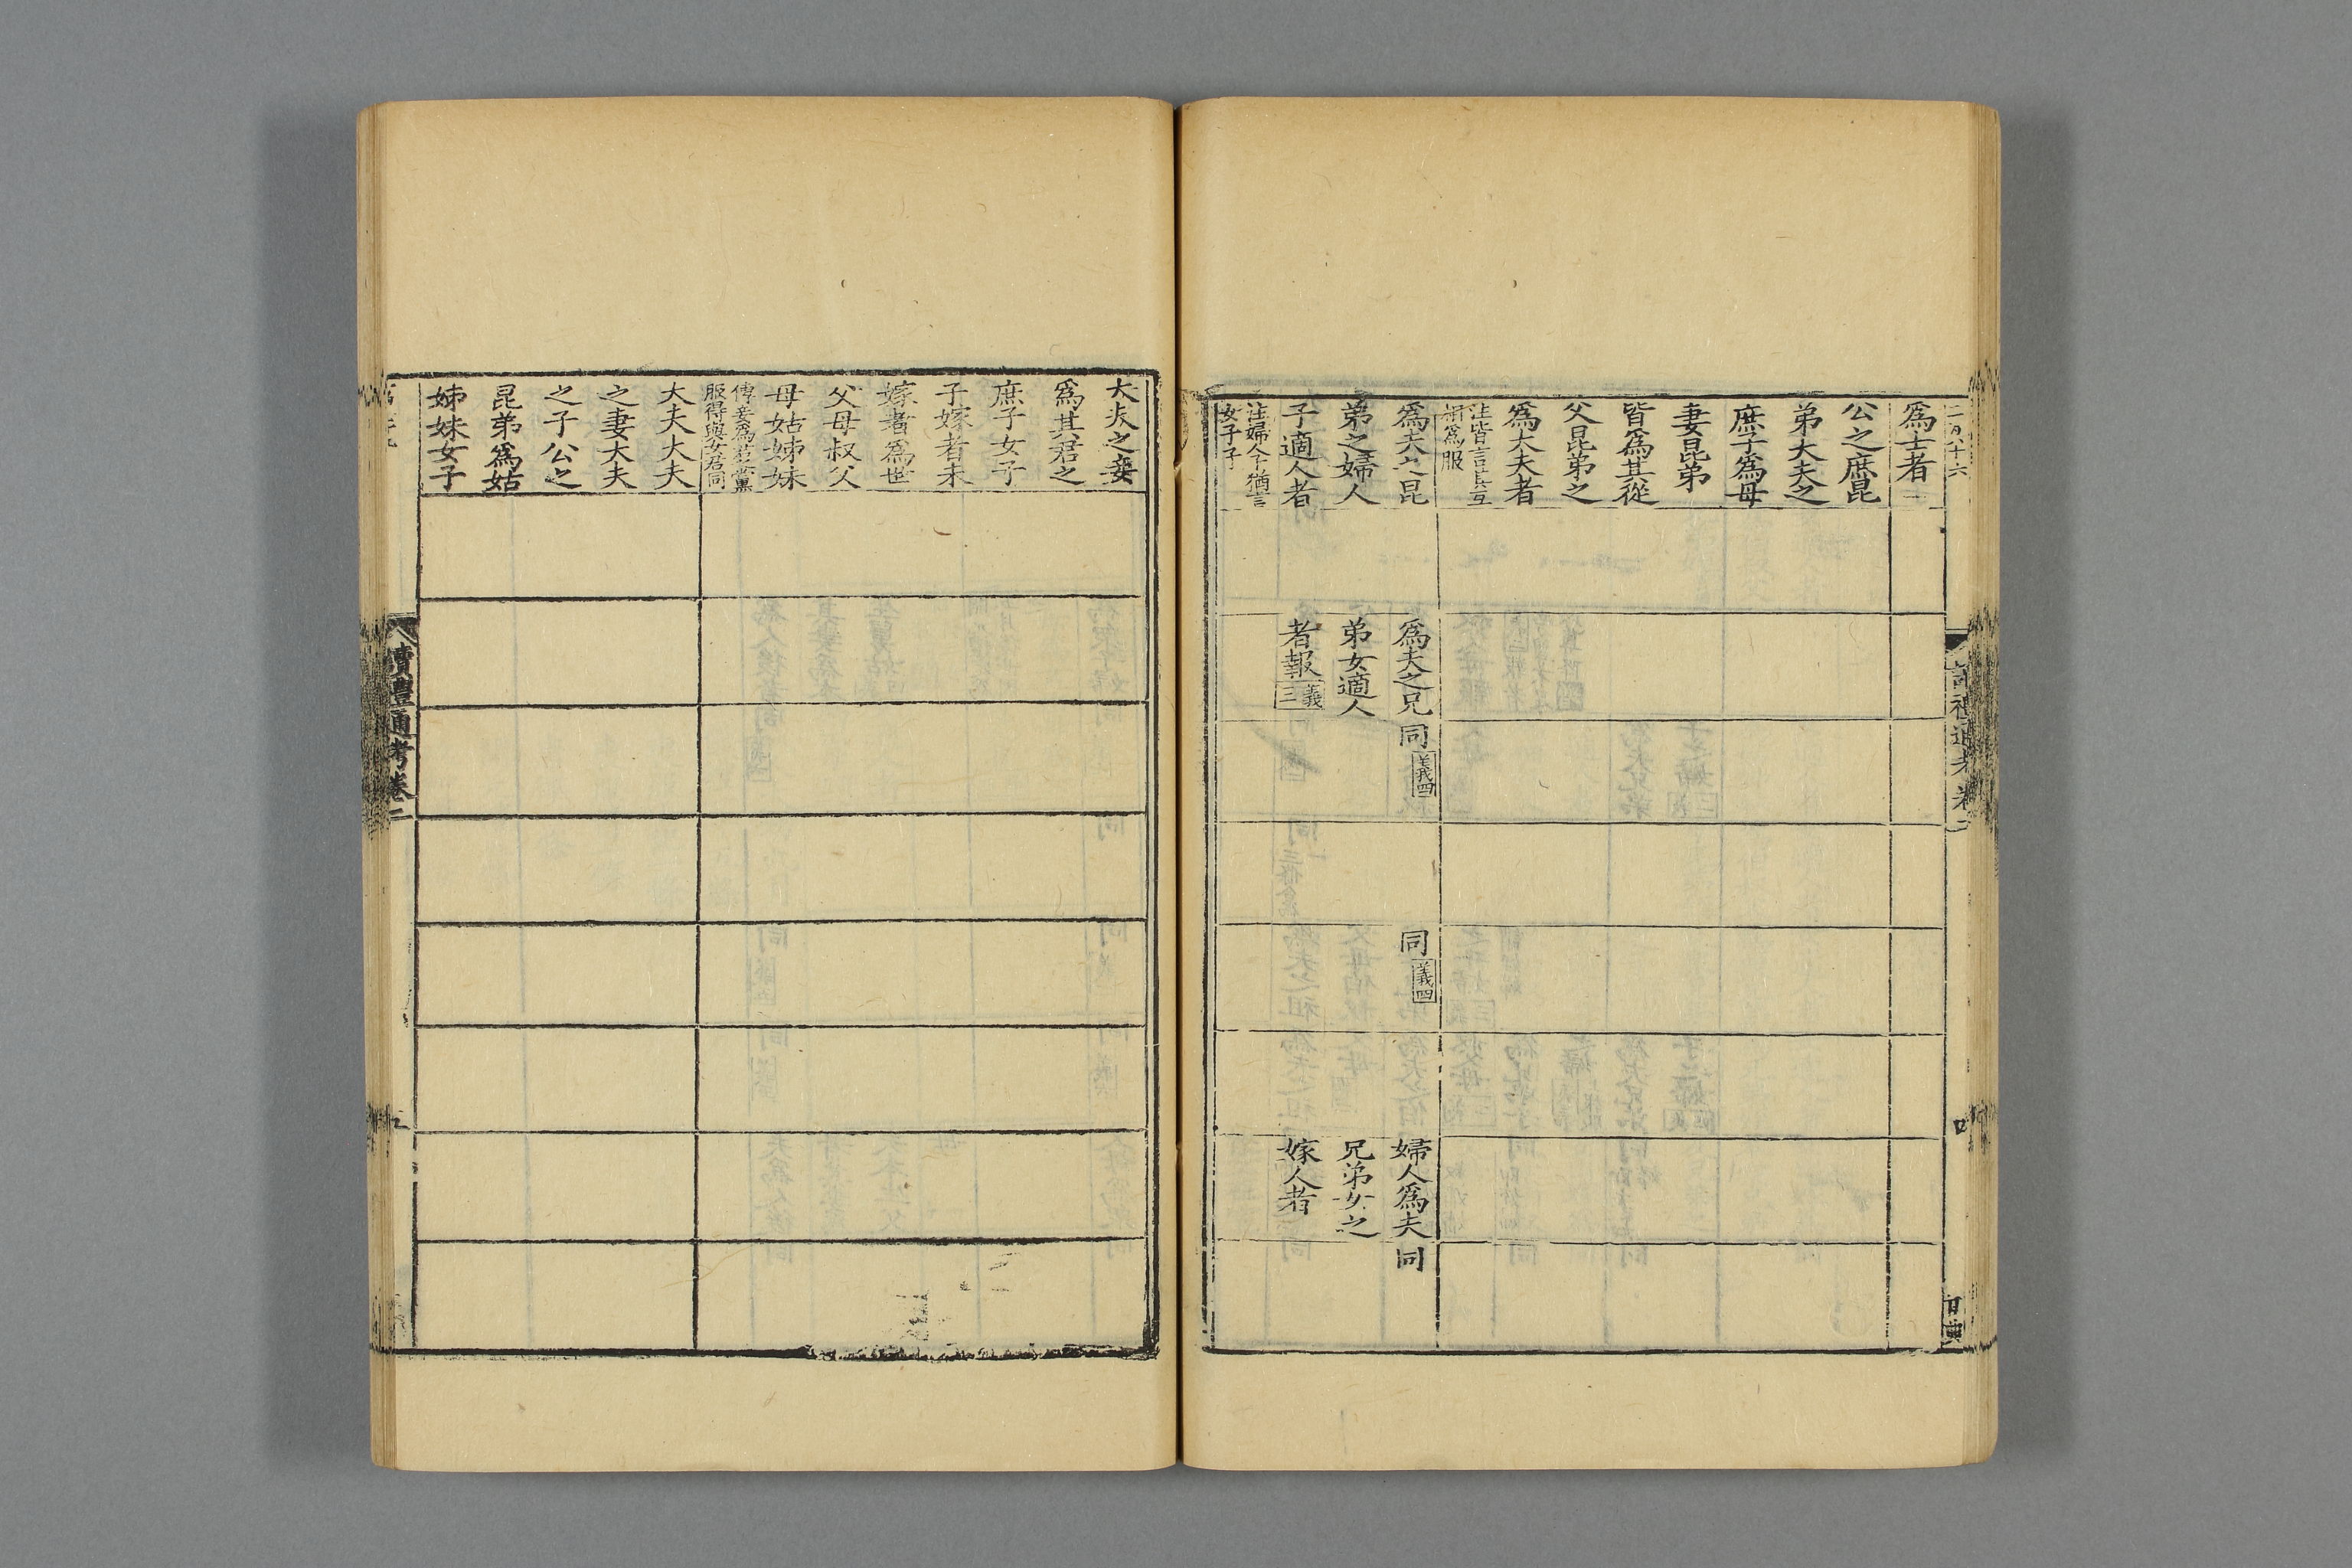 二百八十六
爲士者
公之庶昆
弟大夫之
庶子爲母
妻昆弟
皆爲其從
父昆弟之
爲大夫者
注皆言其互
相爲服
爲夫之昆
弟之婦人
子適人者
注婦人子猶言
女子子
爲夫之兄
弟女適人
者報
義三
同
義四
同
義四
婦人爲夫
兄弟女之
嫁人者
同
大夫之妾
爲其君之
庶子女子
子嫁者未
嫁者爲世
父母叔父
母姑姊妹
傳妾爲君之黨
服得與女君同
大夫大夫
之妻大夫
之子公之
昆弟爲姑
姊妹女子
讀禮通考卷二
五